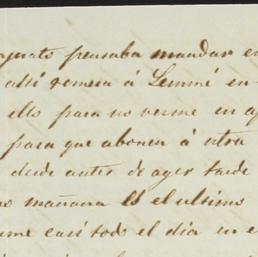 pensaba mandar en
así remesa á Lemmé en
ello para no verme en a
para que abonen á otra
desde antes de ayer tarde
mañana es el ultimo
me casi todo el dia en e